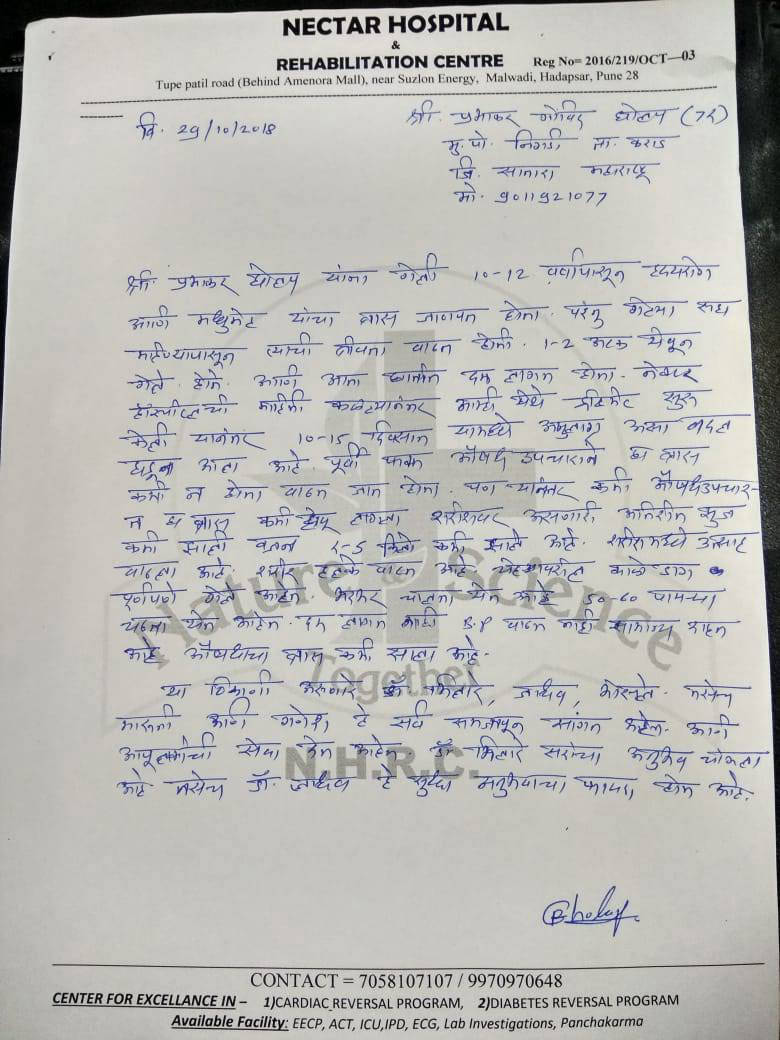 NECTAR HOSPITAL
&
REHABILITATION CENTRE Reg No= 2016/219/OCT—03
Tupe patil road (Behind Amenora Mall), near Suzlon Energy, Malwadi, Hadapsar, Pune 28
दि. 29/10/2018
श्री. प्रभाकर गोविंद घोलप (72)
मु. पो. निगडी ता. कराड
जि. सातारा महाराष्ट्र
मो. 9011921077
श्री. प्रभाकर घोलप यांना गेली 10-12 वर्षापासून हृदयरोग
आणि मधुमेह यांचा त्रास जाणवत होता. परंतु गेल्या सहा
महिण्यापासून त्याची तीव्रता वाढत होती. 1-2 अटक येवून
गेले होते. आणि आता चालताना दम लागत होता. नेक्टर
हॉस्पीटलची माहिती कळल्यानंतर आम्ही येथे ट्रीटमेंट सुरू
केली यानंतर 10-15 दिवसात यामध्ये अमुलाग्र असा बदल
घडून आला आहे. पूर्वी फक्त औषध उपचाराने हा त्रास
कमी न होता वाढत जात होता. पण त्यानंतर कमी औषधउपचार-
त हा त्रास कमी होवू लागला शरीरावर असणारी अतिरीक्त सुज
कमी झाली वजन 2-5 किलो कमी झाले आहे. शरीरामध्ये उत्साह
वाढला आहे. शरीर हलके वाटत आहे चेहऱ्यावरील काळे डाग
पूर्णपणे गेले आहेत. भरभर चालता येत आहे 50-60 पायऱ्या
चढता येत आहेत. दम लागत नाही B.P वाढत नाही सामान्य राहत
आहे औषधाचा त्रास कमी झाला आहे.
या ठिकाणी असणारे डॉ. जाधव, तसेच
मारुती आणि गणेश, हे सर्व समजावून सांगत आहेत. आणी
आपुलकीची सेवा देत आहेत. डॉ. सरांचा अनुभव चांगला
आहे तसेच डॉ. जाधव हे सुद्धा अनुभवाचा फायदा होत आहे.
Nature & Science
Together
N.H.R.C.
CONTACT = 7058107107 / 9970970648
CENTER FOR EXCELLENCE IN – 1)CARDIAC REVERSAL PROGRAM, 2)DIABETES REVERSAL PROGRAM
Available Facility: EECP, ACT, ICU,IPD, ECG, Lab Investigations, Panchakarma